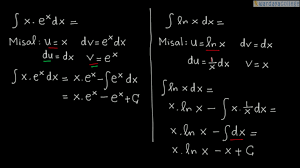 ∫ x·eˣdx =
Misal: u = x dv = eˣdx
du = dx v = eˣ
∫ x·eˣdx = x·eˣ − ∫eˣdx
= x·eˣ − eˣ + C
∫ ln x dx =
Misal: u = ln x dv = dx
du = 1/x dx v = x
∫ ln x dx =
x·ln x − ∫ x·1/x dx =
x·ln x − ∫dx =
x·ln x − x + C